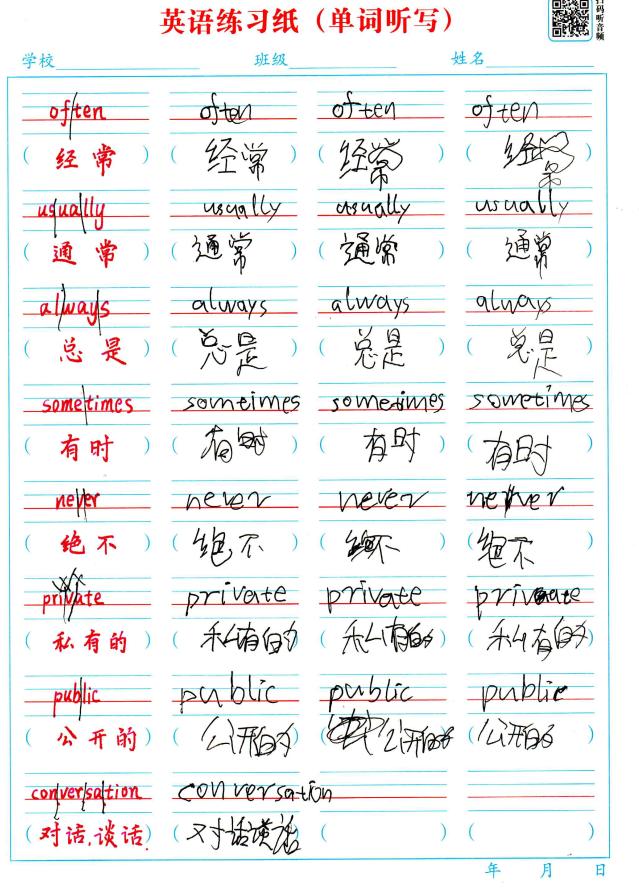 英语练习纸（单词听写）
扫码听音频
学校 班级 姓名
often often often often
（经常）（经常）（经常）（经常）
usually usually usually usually
（通常）（通常）（通常）（通常）
always always always always
（总是）（总是）（总是）（总是）
sometimes sometimes sometimes sometimes
（有时）（有时）（有时）（有时）
never never never never
（绝不）（绝不）（绝不）（绝不）
private private private private
（私有的）（私有的）（私有的）（私有的）
public public public public
（公开的）（公开的）（公开的）（公开的）
conversation conversation
（对话.谈话.）（对话谈话）（ ）（ ）
年 月 日